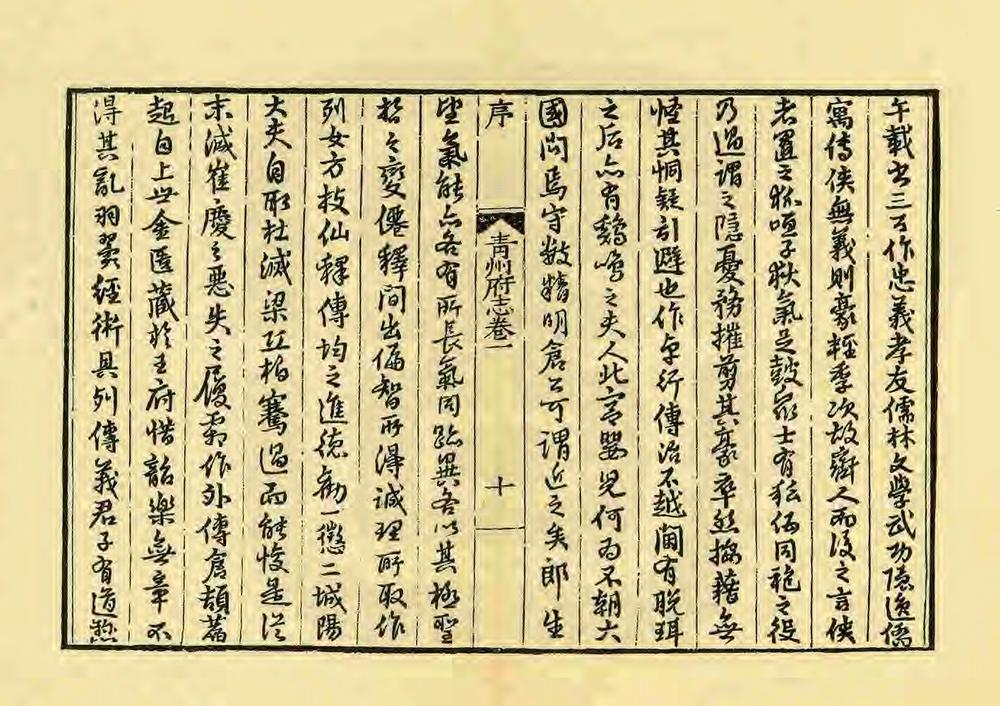 午載者三百作忠義孝友儒林文學武功隱逸僑
寓傳俠無義則豪輕季次故齊人而後之言俠
者置之狐咺子狄氣足鼓衆士有狐偪同袍之役
乃過謂之隱憂務摧剪其豪卒然揭藉無
怪其恫疑引避也作卓行傳治不越閫有脫珥
之后亦有鷄鳴之夫人此宮嬰兒何為不朝六
國問焉守數精明倉公可謂近之矣郎生
序 青州府志卷一 十
望氣能亦各有所長氣同跡異各以其極聖
哲之變僊釋間出偏智所得誠理所取作
列女方技仙釋傳均之進德勸一懲二城陽
大夫自取杜滅梁丘柏騫過而能悛是從
末減崔慶之惡失之履霜作外傳倉頡蓄
起自上世金匱藏於王府惜韶樂無章不
得其亂羽翼經術具列傳義君子有道懸